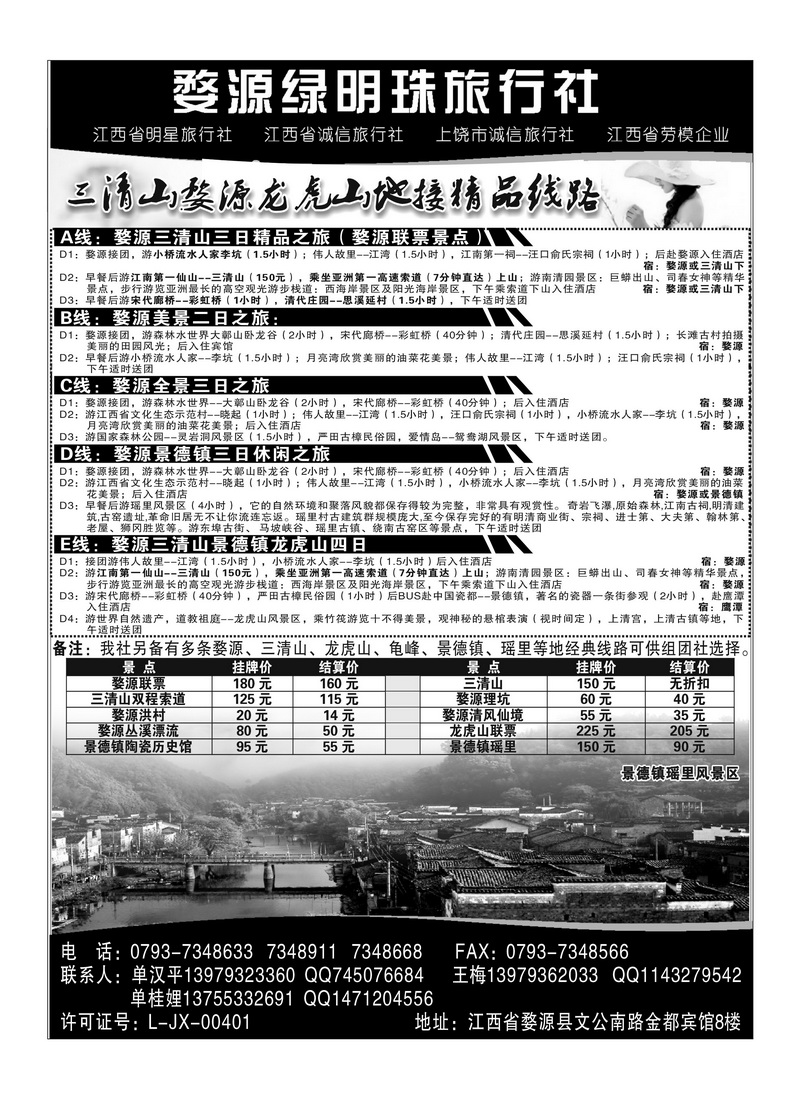 婺源绿明珠旅行社
江西省明星旅行社 江西省诚信旅行社 上饶市诚信旅行社 江西省劳模企业
三清山婺源龙虎山地接精品线路
A线：婺源三清山三日精品之旅（婺源联票景点）
D1：婺源接团，游小桥流水人家李坑（1.5小时）；伟人故里--江湾（1.5小时），江南第一祠--汪口俞氏宗祠（1小时）；后赴婺源入住酒店
宿：婺源或三清山下
D2：早餐后游江南第一仙山--三清山（150元），乘坐亚洲第一高速索道（7分钟直达）上山；游南清园景区：巨蟒出山、司春女神等精华
景点，步行游览亚洲最长的高空观光游步栈道：西海岸景区及阳光海岸景区，下午乘索道下山入住酒店 宿：婺源或三清山下
D3：早餐后游宋代廊桥--彩虹桥（1小时），清代庄园--思溪延村（1.5小时），下午适时送团
B线：婺源美景二日之旅：
D1：婺源接团，游森林水世界大鄣山卧龙谷（2小时），宋代廊桥--彩虹桥（40分钟）；清代庄园--思溪延村（1.5小时）；长滩古村拍摄
美丽的田园风光；后入住宾馆 宿：婺源
D2：早餐后游小桥流水人家--李坑（1.5小时）；月亮湾欣赏美丽的油菜花美景；伟人故里--江湾（1.5小时）；汪口俞氏宗祠（1小时），
下午适时送团
C线：婺源全景三日之旅
D1：婺源接团，游森林水世界--大鄣山卧龙谷（2小时），宋代廊桥--彩虹桥（40分钟）；后入住酒店 宿：婺源
D2：游江西省文化生态示范村--晓起（1小时）；伟人故里--江湾（1.5小时），汪口俞氏宗祠（1小时），小桥流水人家--李坑（1.5小时），
月亮湾欣赏美丽的油菜花美景；后入住酒店 宿：婺源
D3：游国家森林公园--灵岩洞风景区（1.5小时），严田古樟民俗园，爱情岛--鸳鸯湖风景区，下午适时送团。
D线：婺源景德镇三日休闲之旅
D1：婺源接团，游森林水世界--大鄣山卧龙谷（2小时），宋代廊桥--彩虹桥（40分钟）；后入住酒店 宿：婺源
D2：游江西省文化生态示范村--晓起（1小时）；伟人故里--江湾（1.5小时），小桥流水人家--李坑（1.5小时），月亮湾欣赏美丽的油菜
花美景；后入住酒店 宿：婺源或景德镇
D3：早餐后游瑶里风景区（4小时），它的自然环境和聚落风貌都保存得较为完整，非常具有观赏性。奇岩飞瀑,原始森林,江南古祠,明清建
筑,古窑遗址,革命旧居无不让你流连忘返。瑶里村古建筑群规模庞大,至今保存完好的有明清商业街、宗祠、进士第、大夫第、翰林第、
老屋、狮冈胜览等。游东埠古街、马坡峡谷、瑶里古镇、绕南古窑区等景点，下午适时送团
E线：婺源三清山景德镇龙虎山四日
D1：接团游伟人故里--江湾（1.5小时），小桥流水人家--李坑（1.5小时）后入住酒店 宿：婺源
D2：游江南第一仙山--三清山（150元），乘坐亚洲第一高速索道（7分钟直达）上山；游南清园景区：巨蟒出山、司春女神等精华景点，
步行游览亚洲最长的高空观光游步栈道：西海岸景区及阳光海岸景区，下午乘索道下山入住酒店 宿：婺源
D3：游宋代廊桥--彩虹桥（40分钟），严田古樟民俗园（1小时）后BUS赴中国瓷都--景德镇，著名的瓷器一条街参观（2小时），赴鹰潭
入住酒店 宿：鹰潭
D4：游世界自然遗产，道教祖庭--龙虎山风景区，乘竹筏游览十不得美景，观神秘的悬棺表演（视时间定），上清宫，上清古镇等地，下
午适时送团
备注：我社另备有多条婺源、三清山、龙虎山、龟峰、景德镇、瑶里等地经典线路可供组团社选择。
景 点 挂牌价 结算价 景 点 挂牌价 结算价
婺源联票 180 元 160 元 三清山 150 元 无折扣
三清山双程索道 125 元 115 元 婺源理坑 60 元 40 元
婺源洪村 20 元 14 元 婺源清风仙境 55 元 35 元
婺源丛溪漂流 80 元 50 元 龙虎山联票 225 元 205 元
景德镇陶瓷历史馆 95 元 55 元 景德镇瑶里 150 元 90 元
景德镇瑶里风景区
电 话：0793-7348633 7348911 7348668 FAX：0793-7348566
联系人：单汉平13979323360 QQ745076684 王梅13979362033 QQ1143279542
单桂娌13755332691 QQ1471204556
许可证号：L-JX-00401 地址：江西省婺源县文公南路金都宾馆8楼